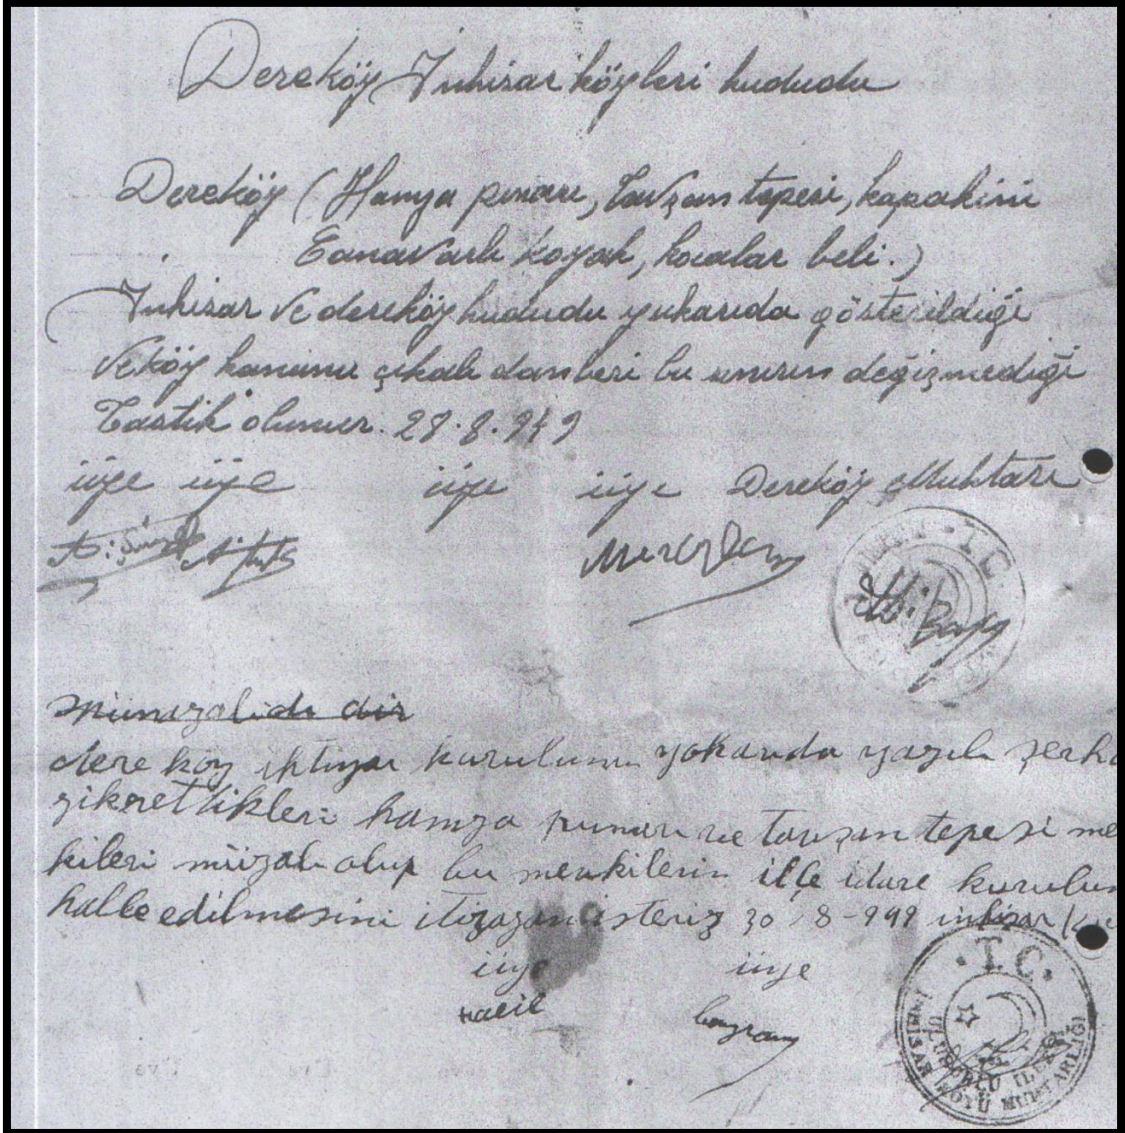 Dereköy İnhisar köyleri hududu
Dereköy (Hamza pınarı, Tavşan tepesi, kapakini
Canavarlı koyak, kocalar beli.)
İnhisar ve dereköy hududu yukarıda gösterildiği
ve köy kanunu çıkalı danberi bu sınırın değişmediği
Tastik olunur. 28.8.949
üye üye üye üye Dereköy Muhtarı
T.C.
dere köy ihtiyar kurulunun yokarıda yazılı şerh
zikrettikleri hamza punarı ve tavşan tepesi me
kileri olup bu mevkilerin ilçe idare kurulun
halle edilmesini isteriz 30-8-949 inhisar
üye üye
Halil bayram
T.C.
İNHİSAR KÖYÜ MUHTARLIĞI
ULUBORLU İLÇESİ